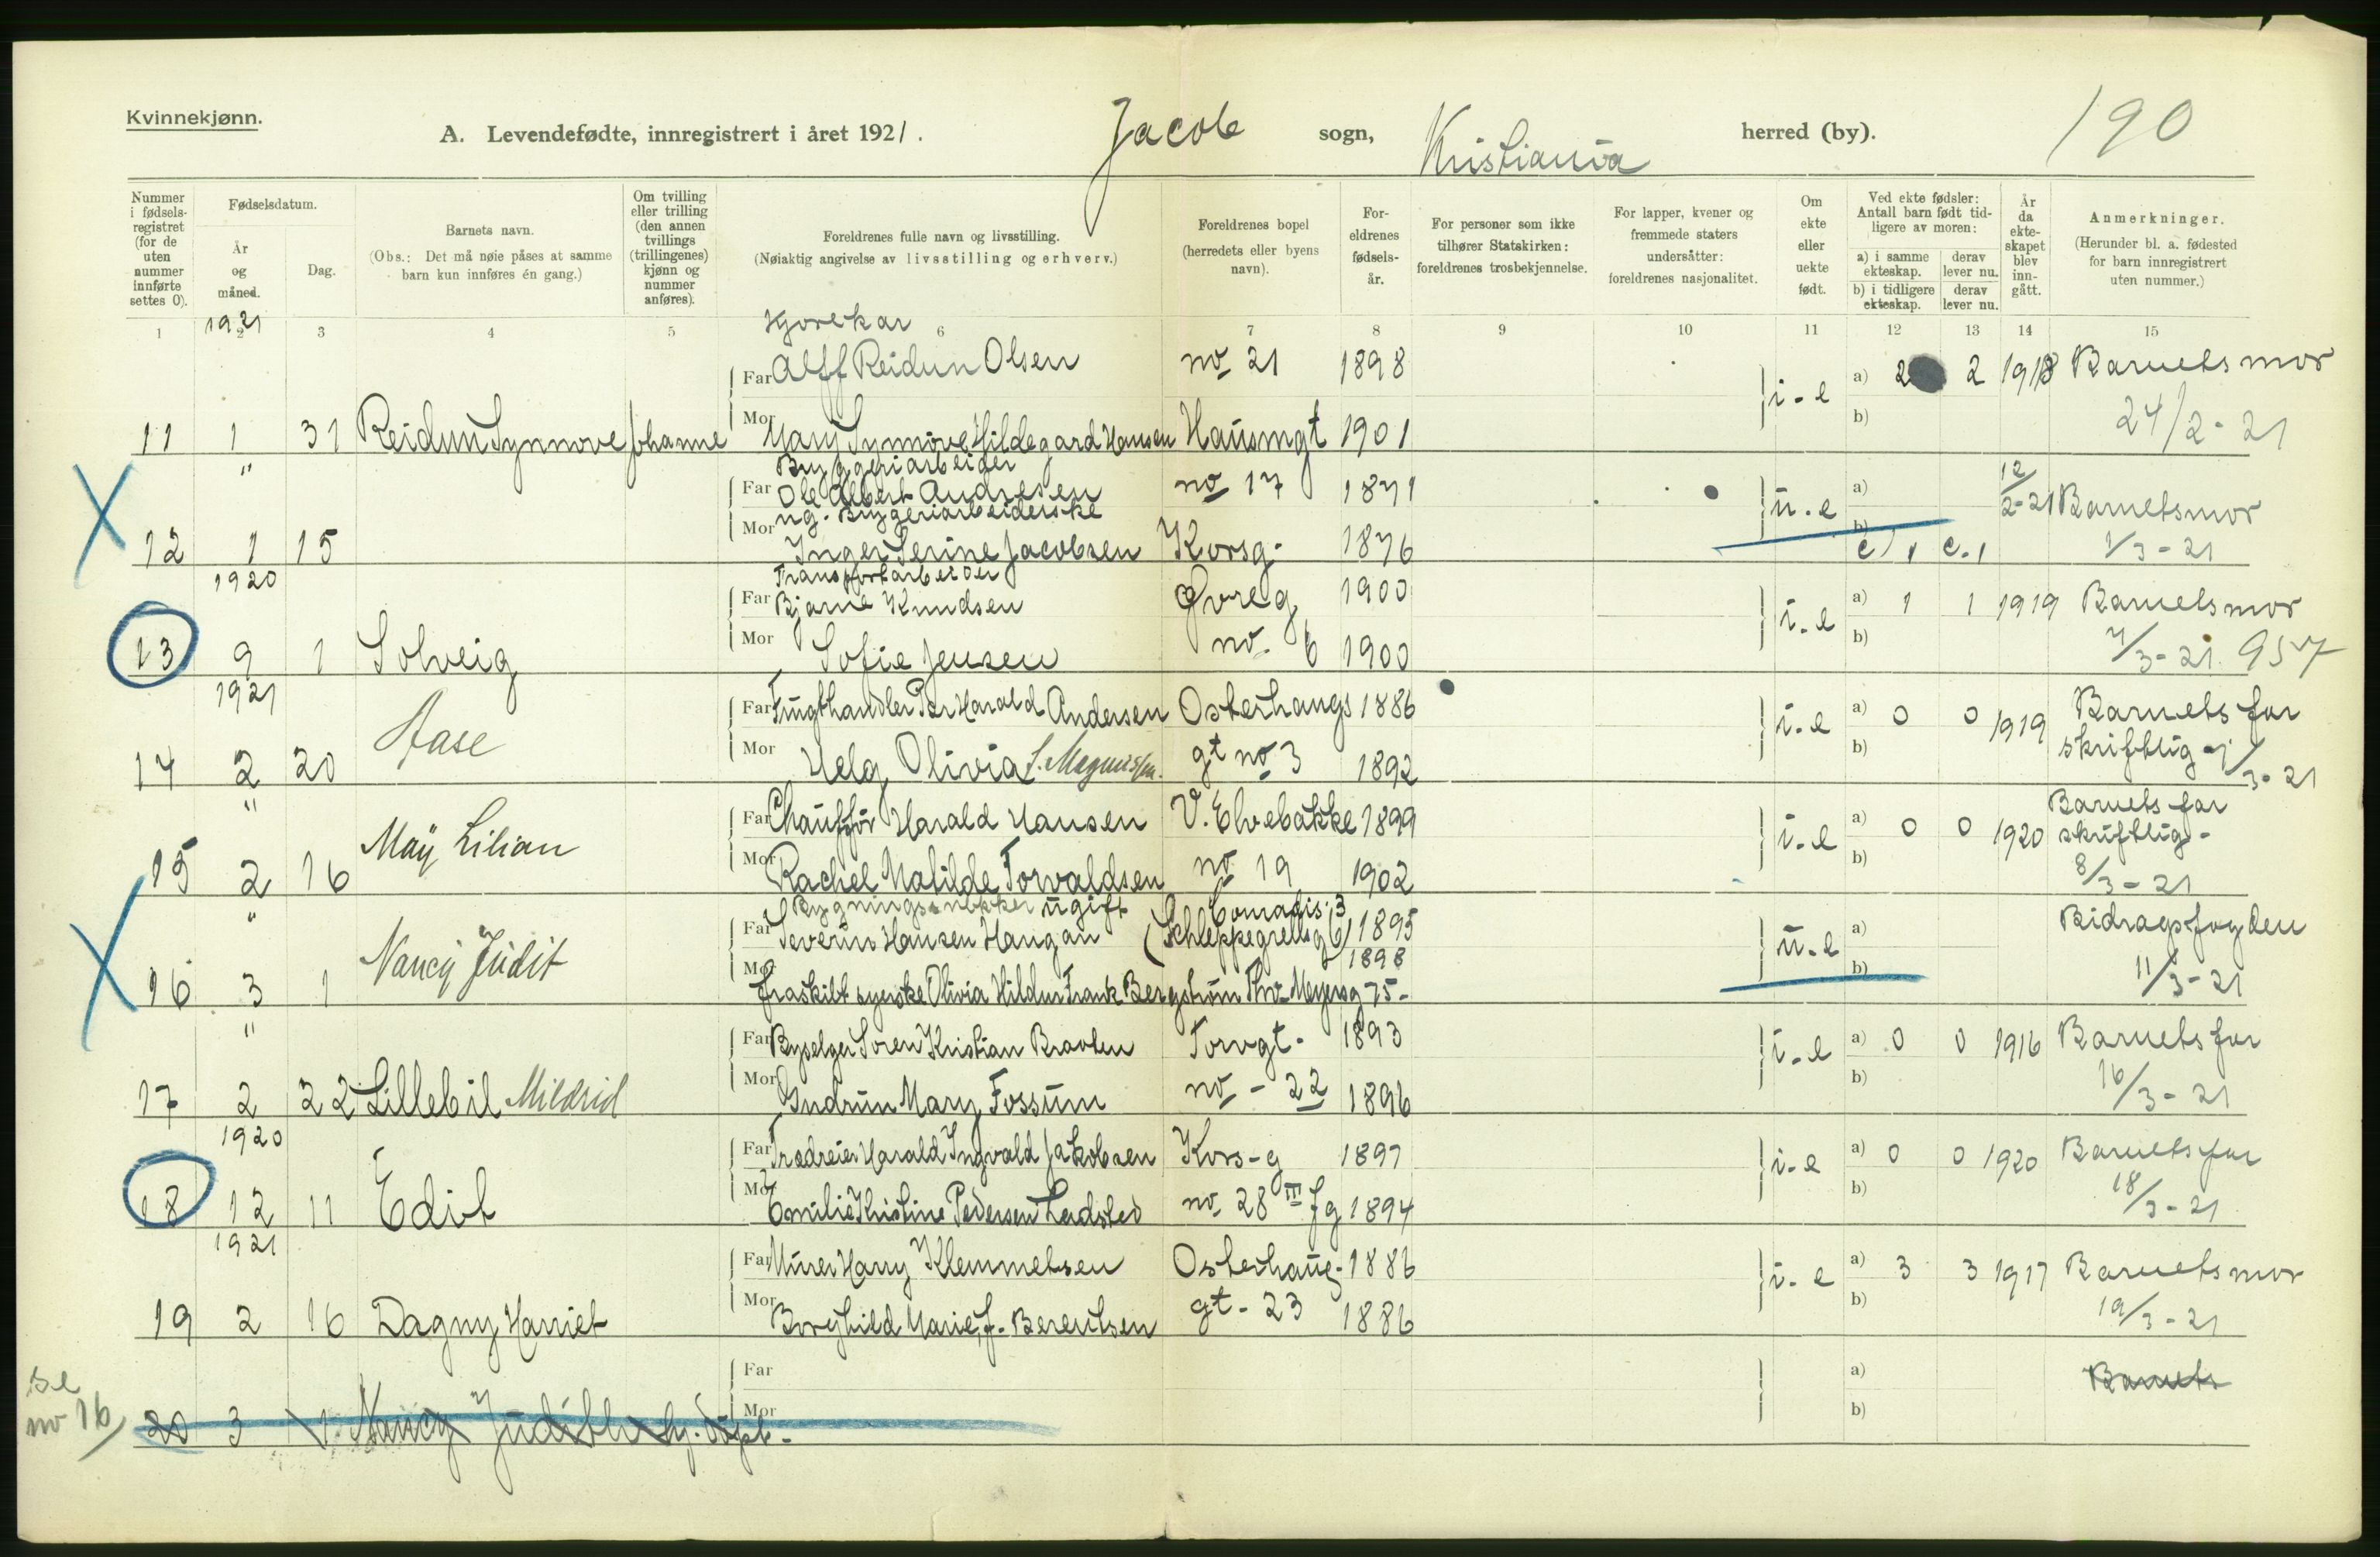 Kvinnekjønn.
A. Levendefødte, innregistrert i året 1921. Jacob sogn, Kristiania herred (by). 190
Nummer i fødselsregistret (for de uten nummer innførte settes 0).
Fødselsdatum.
År og måned.
Dag.
Barnets navn.
(Obs.: Det må nøie påses at samme barn kun innføres én gang.)
Om tvilling eller trilling (den annen tvillings (trillingenes) kjønn og nummer anføres).
Foreldrenes fulle navn og livsstilling.
(Nøiaktig angivelse av livsstilling og erhverv.)
Foreldrenes bopel (herredets eller byens navn).
Foreldrenes fødselsår.
For personer som ikke tilhører Statskirken: foreldrenes trosbekjennelse.
For lapper, kvener og fremmede staters undersåtter: foreldrenes nasjonalitet.
Om ekte eller uekte født.
Ved ekte fødsler: Antall barn født tidligere av moren:
a) i samme ekteskap. derav lever nu.
b) i tidligere ekteskap. derav lever nu.
År da ekteskapet blev inngått.
Anmerkninger.
(Herunder bl. a. fødested for barn innregistrert uten nummer.)
1 2 3 4 5 6 7 8 9 10 11 12 13 14 15
1921
Kjørekar
Far Alff Reidun Olsen no 21 1898 i-e a) 2 2 1918 Barnets mor
11 1 31 Reidun Synnove Johanne Mor Mary Synnöve Hildegard Hansen Hausmgt 1901 b) 24/2-21
" Bryggeriarbeider
Far Ole Albert Andresen no 17 1871 u.e a) 12/2-21 Barnets mor
ug. Bryggeriarbeiderske
12 1 15 Mor Inger Serine Jacobsen Korsg. 1876 b) c) 1 c. 1 1/3-21
1920 Transportarbeider
Far Bjarne Knudsen Øvreg 1900 i.e a) 1 1 1919 Barnets mor
13 9 1 Solveig Mor Sofie Jensen no. 6 1900 b) 7/3-21. 957
1921
Far Frugthandler Per Harald Andersen Osterhaugs 1886 i.e a) 0 0 1919 Barnets far
14 2 20 Aase Mor Helg Olivia S. Magnussen. gt no 3 1892 b) skriftlig 7/3-21
"
Far Chauffør Harald Hansen V. Elvebakke 1899 i.e a) 0 0 1920 Barnets far skriftlig-
15 2 16 May Lilian Mor Rachel Matilde Torvaldsen no 19 1902 b) 8/3-21
" Bygningssnekker ugift Conradis. 3
Far Severin Hansen Haugan (Schleppegrellsg 6) 1895 u.e a) Bidragsfogden
16 3 1 Nancy Judit Mor fraskilt syerske Olivia Hildur Frank Bergstrøm Thv. Meyersg 75- 1898 b) 11/3-21
"
Far Byselger Soren Kristian Braaten Torvgt. 1893 i.e a) 0 0 1916 Barnets far
17 2 22 Lillebil Mildrid Mor Gudrun Mary Fossum no - 22 1896 b) 16/3-21
1920
Far Trædreier Harald Ingvald Jakobsen Kors-g 1897 i-e a) 0 0 1920 Barnets far
18 12 11 Edit Mor Emilie Kristine Pedersen Ladsted no 28 III fg 1894 b) 18/3-21
1921
Far Murer Harry Klemmetsen Osterhaug- 1886 i-e a) 3 3 1917 Barnets mor
19 2 16 Dagny Harriet Mor Borghild Marie, f. Berentsen gt-23 1886 b) 19/3-21
Far a) Barnets
se no 16 20 3 1 Nancy Judith Mor b)